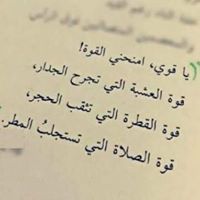 يا قوي، امنحني القوة!
قوة العشبة التي تجرح الجدار،
قوة القطرة التي تثقب الحجر،
قوة الصلاة التي تستجلبُ المطر.